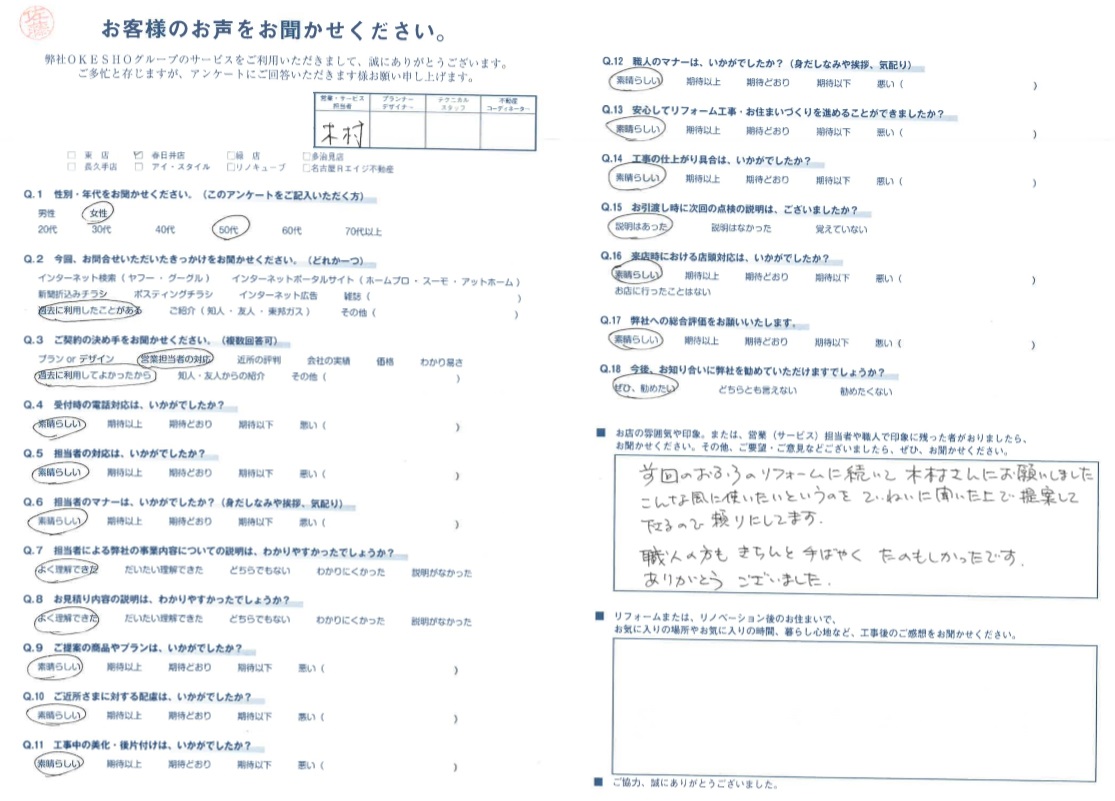 佐藤
お客様のお声をお聞かせください。
弊社OKESHOグループのサービスをご利用いただきまして、誠にありがとうございます。
ご多忙と存じますが、アンケートにご回答いただきます様お願い申し上げます。
営業・サービス担当者 プランナーデザイナー テクニカルスタッフ 不動産コーディネーター
木村
□ 東 店 ☑ 春日井店 □緑 店 □多治見店
□ 長久手店 □ アイ・スタイル □リノキューブ □名古屋東エイジ不動産
Q.1 性別・年代をお聞かせください。（このアンケートをご記入いただく方）
男性 女性
20代 30代 40代 50代 60代 70代以上
Q.2 今回、お問合せいただいたきっかけをお聞かせください。（どれか一つ）
インターネット検索（ ヤフー ・ グーグル ） インターネットポータルサイト（ ホームプロ ・ スーモ ・ アットホーム ）
新聞折込みチラシ ポスティングチラシ インターネット広告 雑誌（ ）
過去に利用したことがある ご紹介（ 知人 ・ 友人 ・ 東邦ガス ） その他（ ）
Q.3 ご契約の決め手をお聞かせください。（複数回答可）
プラン or デザイン 営業担当者の対応 近所の評判 会社の実績 価格 わかり易さ
過去に利用してよかったから 知人・友人からの紹介 その他（ ）
Q.4 受付時の電話対応は、いかがでしたか？
素晴らしい 期待以上 期待どおり 期待以下 悪い（ ）
Q.5 担当者の対応は、いかがでしたか？
素晴らしい 期待以上 期待どおり 期待以下 悪い（ ）
Q.6 担当者のマナーは、いかがでしたか？（身だしなみや挨拶、気配り）
素晴らしい 期待以上 期待どおり 期待以下 悪い（ ）
Q.7 担当者による弊社の事業内容についての説明は、わかりやすかったでしょうか？
よく理解できた だいたい理解できた どちらでもない わかりにくかった 説明がなかった
Q.8 お見積り内容の説明は、わかりやすかったでしょうか？
よく理解できた だいたい理解できた どちらでもない わかりにくかった 説明がなかった
Q.9 ご提案の商品やプランは、いかがでしたか？
素晴らしい 期待以上 期待どおり 期待以下 悪い（ ）
Q.10 ご近所さまに対する配慮は、いかがでしたか？
素晴らしい 期待以上 期待どおり 期待以下 悪い（ ）
Q.11 工事中の美化・後片付けは、いかがでしたか？
素晴らしい 期待以上 期待どおり 期待以下 悪い（ ）
Q.12 職人のマナーは、いかがでしたか？（身だしなみや挨拶、気配り）
素晴らしい 期待以上 期待どおり 期待以下 悪い（ ）
Q.13 安心してリフォーム工事・お住まいづくりを進めることができましたか？
素晴らしい 期待以上 期待どおり 期待以下 悪い（ ）
Q.14 工事の仕上がり具合は、いかがでしたか？
素晴らしい 期待以上 期待どおり 期待以下 悪い（ ）
Q.15 お引渡し時に次回の点検の説明は、ございましたか？
説明はあった 説明はなかった 覚えていない
Q.16 来店時における店頭対応は、いかがでしたか？
素晴らしい 期待以上 期待どおり 期待以下 悪い（ ）
お店に行ったことはない
Q.17 弊社への総合評価をお願いいたします。
素晴らしい 期待以上 期待どおり 期待以下 悪い（ ）
Q.18 今後、お知り合いに弊社を勧めていただけますでしょうか？
ぜひ、勧めたい どちらとも言えない 勧めたくない
■ お店の雰囲気や印象。または、営業（サービス）担当者や職人で印象に残った者がおりましたら、
お聞かせください。その他、ご要望・ご意見などございましたら、ぜひ、お聞かせください。
前回のおふろのリフォームに続いて 木村さんにお願いしました
こんな風に使いたいというのを ていねいに聞いた上で 提案して
下さるので 頼りにしてます.
職人の方も きちんと 手ばやく たのもしかったです.
ありがとう ございました.
■ リフォームまたは、リノベーション後のお住まいで、
お気に入りの場所やお気に入りの時間、暮らし心地など、工事後のご感想をお聞かせください。
■ ご協力、誠にありがとうございました。